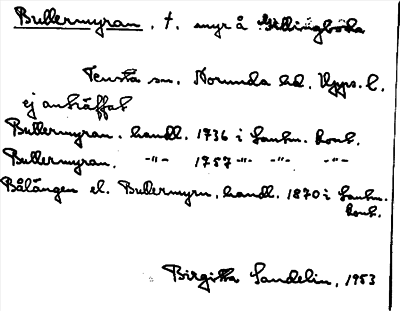 Bullermyran, t. myr å Gillingboda
Tensta sn. Norunda hd. Upps. l.
ej anträffat
Bullermyran. handl. 1736 i Lantm. kont.
Bullermyran. -"- 1757 -"- -"- -"-
Bålängen el. Bullermyrn, handl. 1870 i Lantm.
kont.
Birgitta Sandelin, 1953